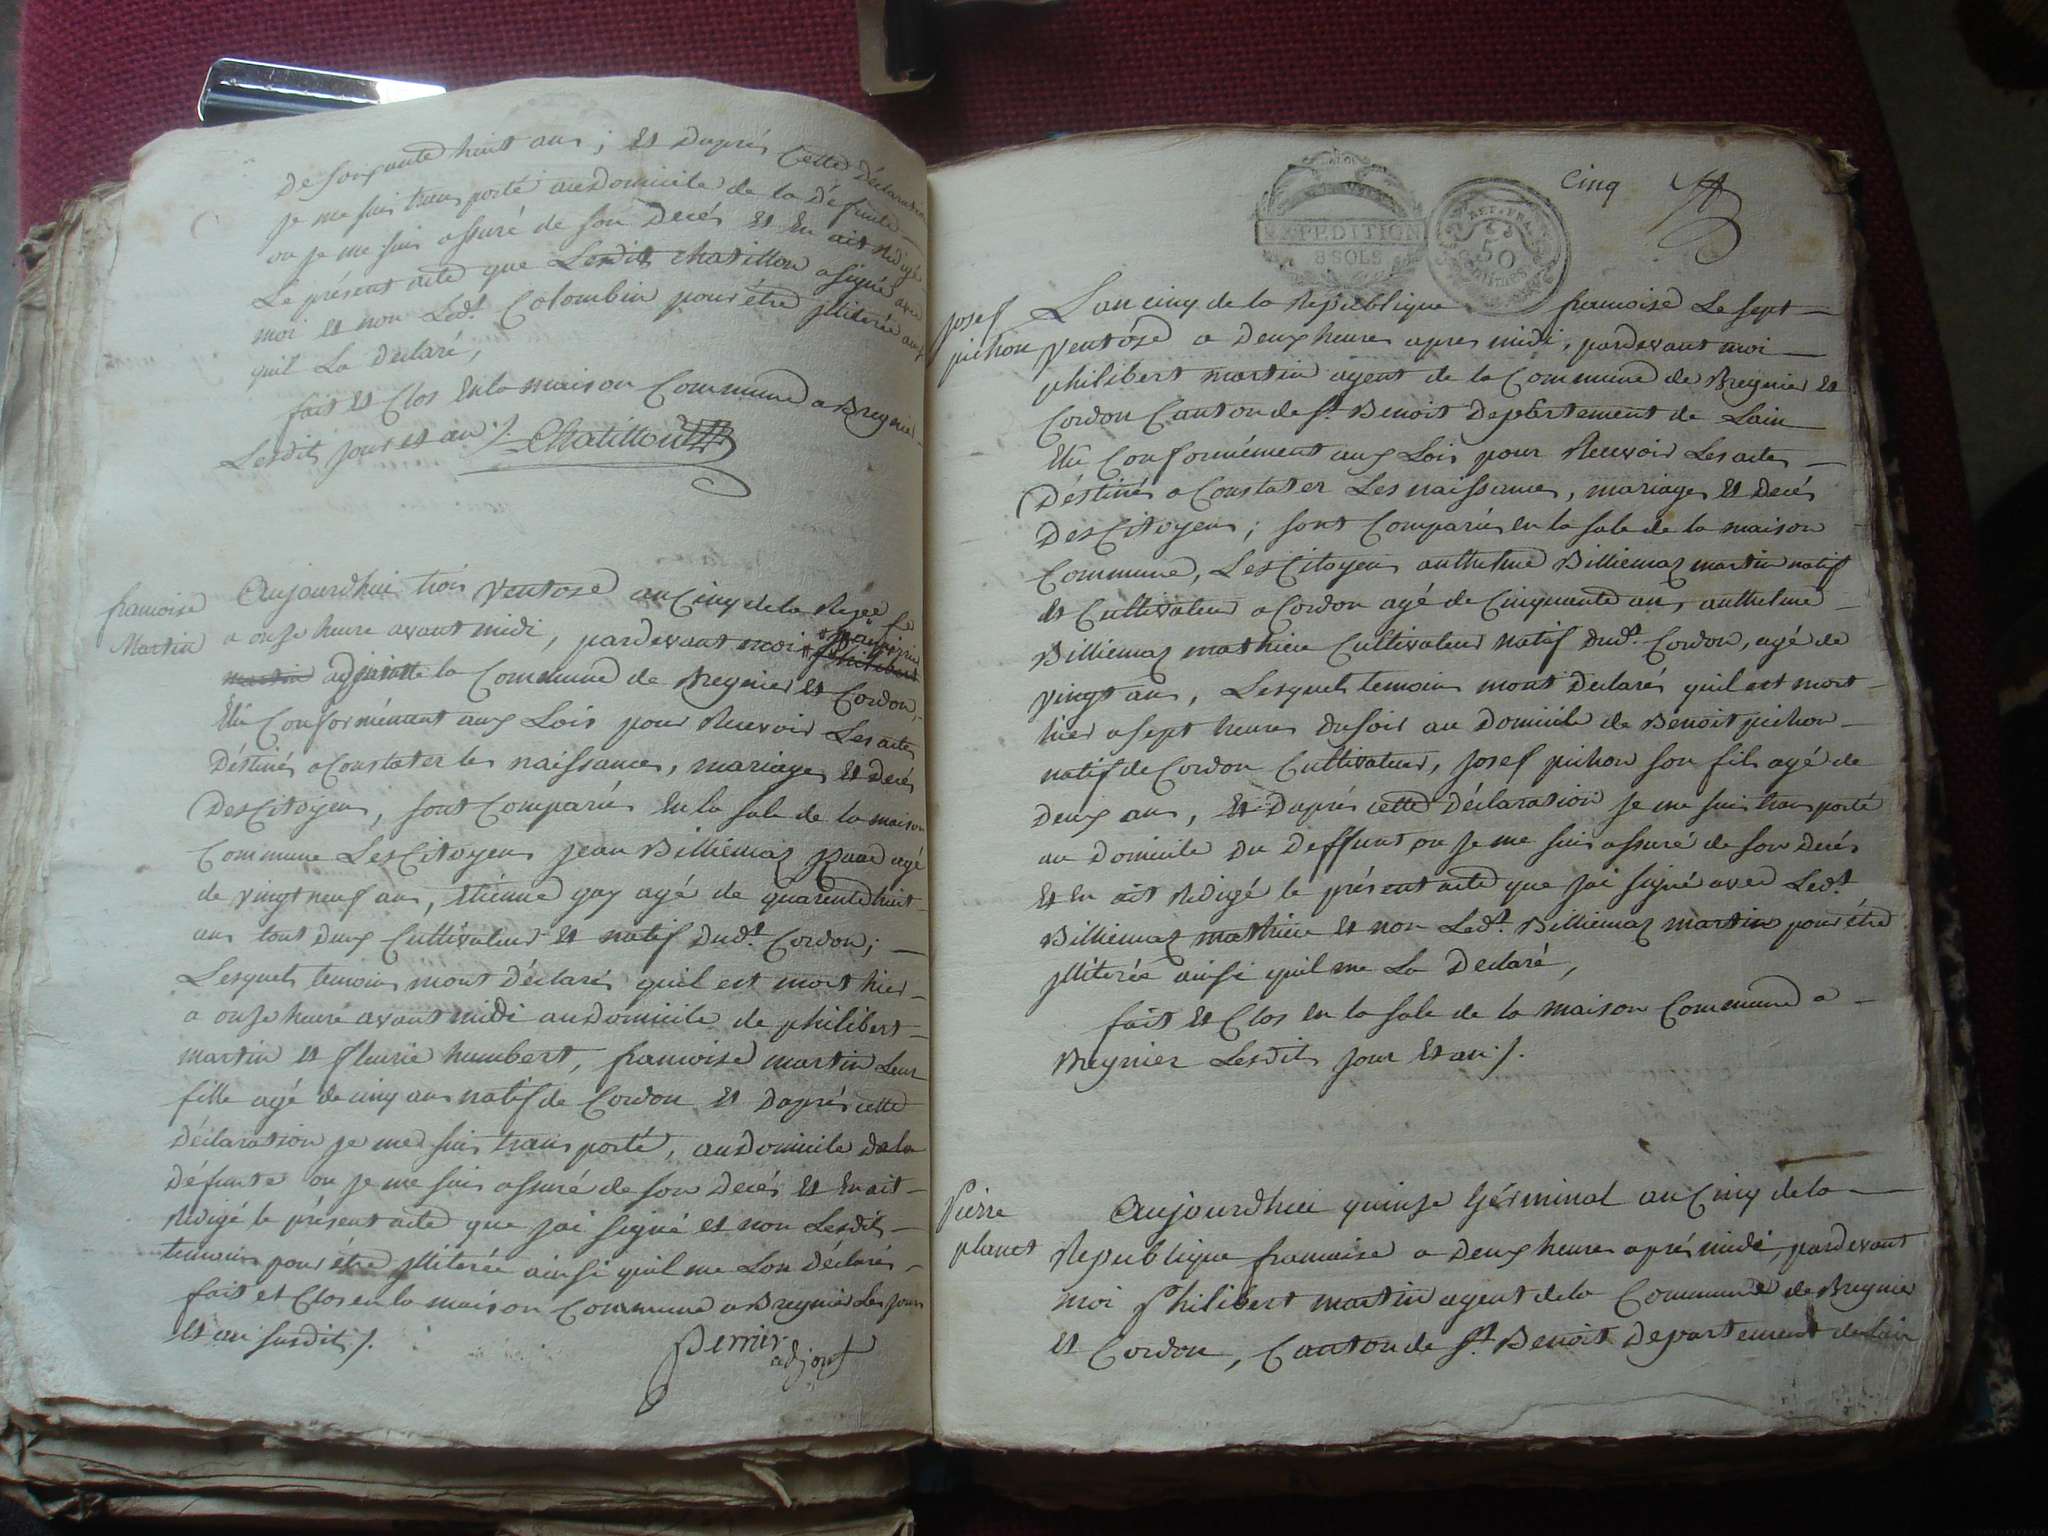 De soixante huit ans; et daprés Cette Déclaration
Je me suis trans porté audomicile de la Défunte
ou je me suis assuré de son Decés et En ait Redigé
Le présent acte que Lesdit chatillon a signé avec
moi et non Ledt. Colombin pour être illiterée ainsi
quil La declaré,
fait et Clos En la maison Commune a Bregnier
Lesdits jour et an ./. Chatillon
francoise
Martin
Aujourdhui trois Ventose an Cinq de la Repe fe
a onse heure avant midi, pardevant moi philibert
martin adjoint de la Commune de Bregnier et Cordon,
Elu Conformément aux Lois pour Recevoir Les actes
Déstinés a Constater les naissances, mariages et Decés
Des Citoyens, sont Comparus En la sale de la maison
Commune Les Citoyens Jean Billiemaz agé
de vingt neuf ans, Etiénne gay agé de quarente huit
ans tout deux Cultivateur et natif Dudt. Cordon;
Lesquels temoins mont Déclarés quil est mort hier
a onse heure avant midi audomicile de philibert
martin et fleurie humbert, francoise martin Leur
fille agé de cinq ans natif de Cordon et Daprés cette
Déclaration je me suis trans porté, audomicile dela
défunte ou je me suis assuré de son Decés et En ait
Redigé le présent acte que jai signé et non Lesdits
temoins pour étre illiterée ainsi quil me Lon Déclarés
fait et Clos en la maison Commune a Bregnier Les jour
et an susdits ./.
Perrier
adjoint
Cinq
EXPEDITION
8 SOLS
REP. FRA.
50
CENTIMES
Josef
pichon
Lan cinq de la Republique francoise Le sept
Ventôse a Deux heures apres midi, pardevant moi
philibert martin agent de la Commune de Bregnier et
Cordon Canton de St. Benoit Departement de Lain
Elu Conformément aux Lois pour Recevoir Les actes
Déstinés a Constater Les naissances, mariages et Decés
Des Citoyens; sont Comparus en la sale de la maison
Commune, Les Citoyens anthelme Billiemaz martin natif
et Cultivateur a Cordon agé de Cinquante ans, anthelme
Billiemaz mathieu Cultivateur natif dudt. Cordon, agé de
vingt ans, Lesquels temoins mont Declarés quil est mort
hier a sept heures du soir au Domicile de Benoit pichon
natif de Cordon Cultivateur, Josef pichon son fils agé de
Deux ans, Et Daprés cette Déclaration Je me suis trans porté
au Domicile Du Deffunt ou Je me suis assuré de son Decés
et En ait Redigé le présent acte que Jai signé avec Ledt.
Billiemaz mathieu et non Ledt. Billiemaz martin pour être
illiterée ainsi quil me La Declaré,
fait et Clos en la sale de la maison Commune a
Bregnier Lesdits jour et an ./.
Pierre
planet
Aujourdhui quinse Gérminal an Cinq de la
Republique francaise a Deux heures aprés midi, pardevant
moi Philibert martin agent de la Commune de Bregnier
et Cordon, Canton de St. Benoit Departement de Lain